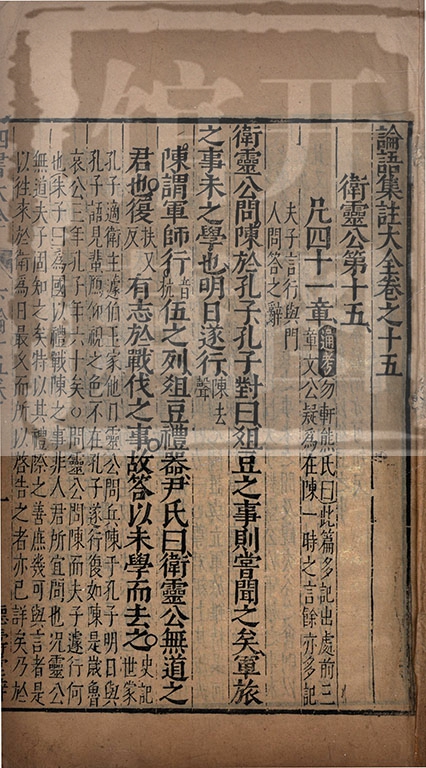 論語集註大全卷之十五
衛靈公第十五
凡四十一章 通考 勿軒熊氏曰此篇多記出處前三
章文公疑為在陳一時之言餘亦多記
夫子言行與門
人問答之辭
衛靈公問陳於孔子孔子對曰俎豆之事則嘗聞之矣軍旅
之事未之學也明日遂行陳去聲
陳謂軍師行音杭伍之列俎豆禮器尹氏曰衛靈公無道之
君也復扶又反有志於戰伐之事故答以未學而去之○史記世家
孔子適衛主蘧伯玉家他日靈公問兵陳於孔子明日與
孔子語見蜚鴈仰視之色不在孔子遂行復如陳是歲魯
哀公三年孔子年六十矣○問靈公問陳而夫子遂行何
也朱子曰為國以禮戰陳之事非人君所宜問也况靈公
無道夫子固知之矣特以其禮際之善庶幾可與言者是
以往來於衛為日最久而所以啓告之者亦已詳矣乃於